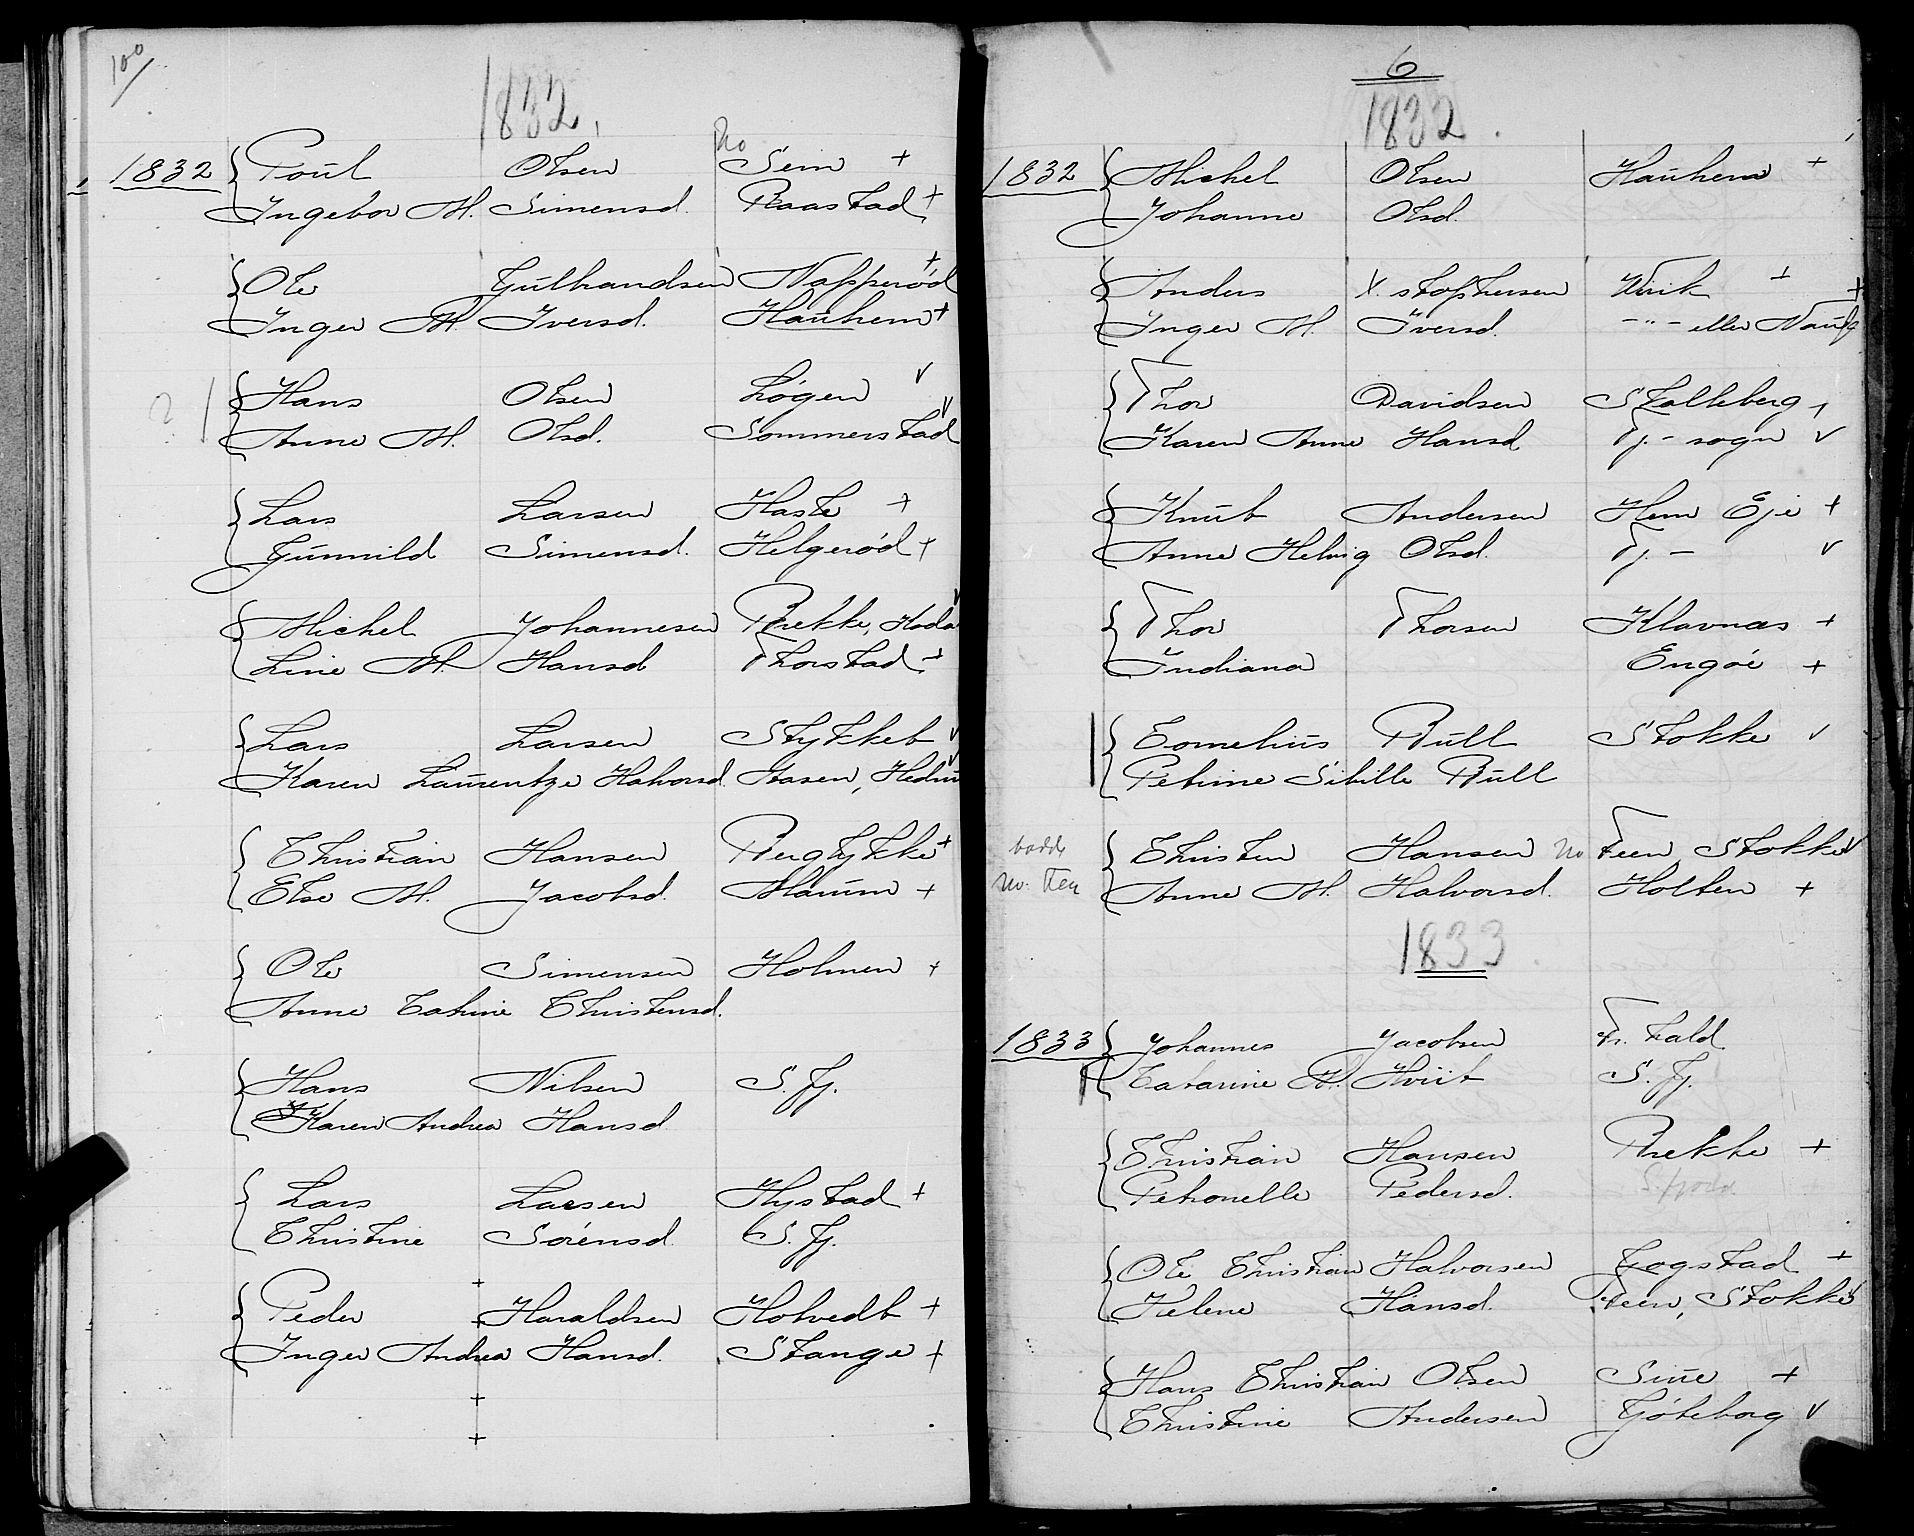 100
1832.
No
1832 Poul Olsen Sem +
Ingebor M. Simensd. Raastad +
Ole Gulbrandsen Napperød +
Inger M. Iversd. Hauhem +
2 Hans Olsen Løgen v
Anne M. Olsd. Sommerstad v
Lars Larsen Hasle +
Gunnild Simensd. Helgerød +
Michel Johannesen Brekke, v
Line M. Hansd Thorstad +
Lars Larsen Stykket v
Karen Laurentze Halvorsd. Aasen, v
Christian Hansen Bugtykke +
Else M. Jacobsd. Marum +
Ole Simensen Holmen +
Anne Catrine Christensd.
Hans Nilsen S. Fj.
Karen Andrea Hansd
Lars Larsen Hystad +
Christine Sørensd S. Fj.
+
Peder + Haraldsen Hotvedt +
Inger Andrea Hansd. Stange +
+
+
6
1832.
1832 Michel Olsen Hauhem +
Johanne Olsd.
Anders X.stophersen Virik + +
Inger M. Iversd. -"- eller
Thor Davidsen Skalleberg +
Karen Anne Hansd Tj.- sogn v
Knut Andersen Hem Eje +
Anne Helvig Olsd. Tj.- v
Thor Thorsen Klavnæs +
Indiana Engøe +
Cornelius Bull Stokke v
Petrine Sibille Bull
bodde Christen Hansen No Feen Stokke v
No. Feen Anne M. Halvorsd. Holten +
1833.
1833 Johannes Jacobsen Fr.hald
Catarine M. Hviit S. Fj.
Christian Hansen Brekke +
Petronelle Pedersd.
Ole Christian Halvorsen Gogstad +
Helene Hansd. Feen, Stokke v
Hans Christian Olsen Süe +
Christine Andersen Göteborg v